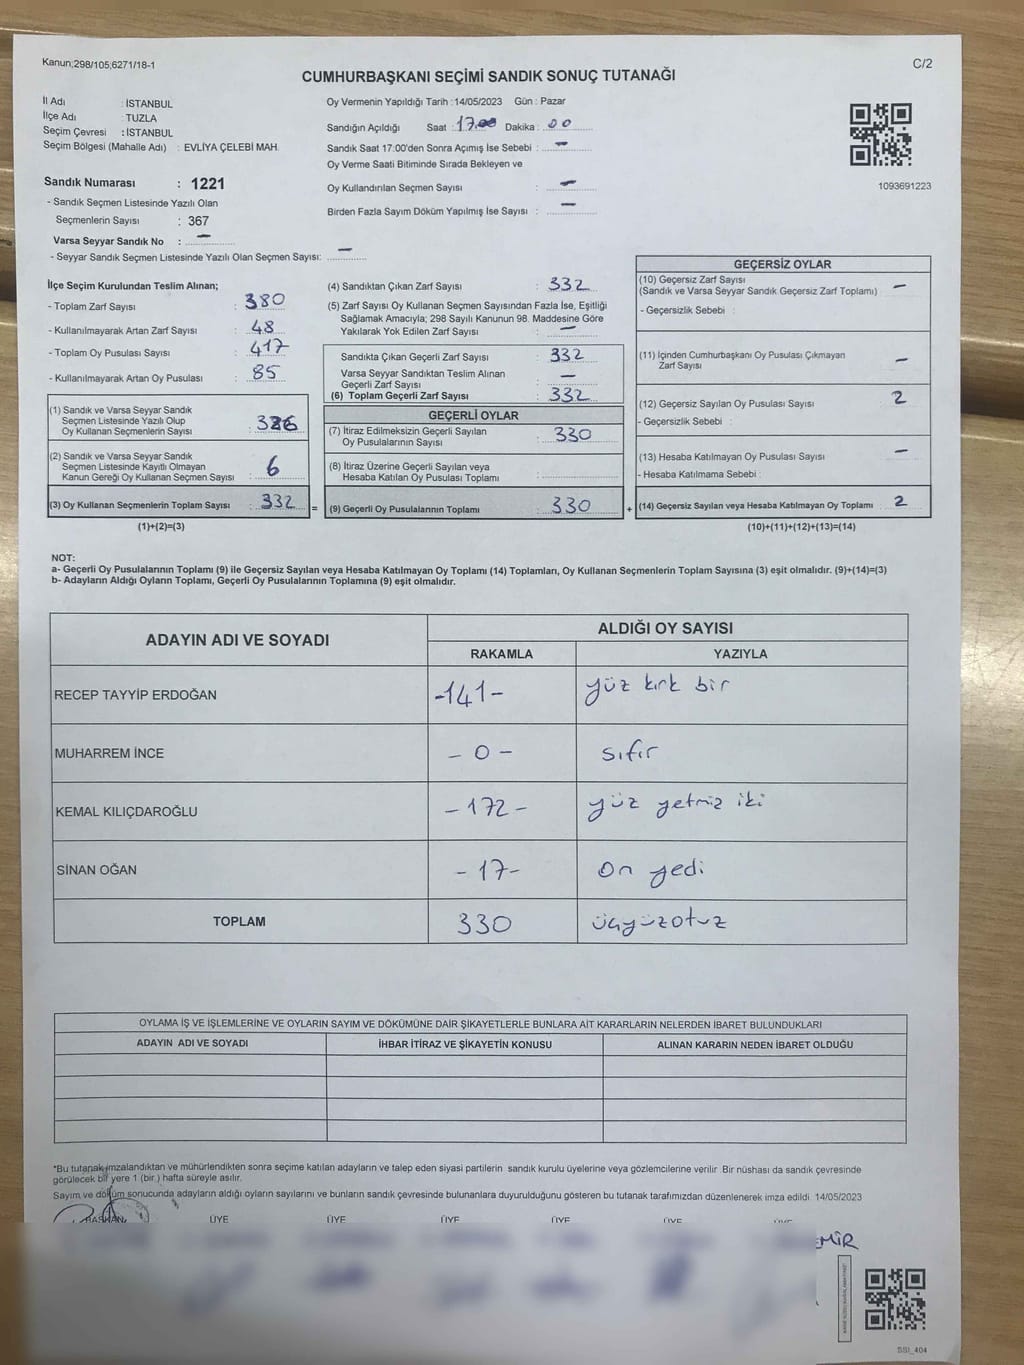 Kanun;298/105;6271/18-1
C/2
CUMHURBAŞKANI SEÇİMİ SANDIK SONUÇ TUTANAĞI
İl Adı : İSTANBUL
İlçe Adı : TUZLA
Seçim Çevresi : İSTANBUL
Seçim Bölgesi (Mahalle Adı) : EVLİYA ÇELEBİ MAH.
Sandık Numarası : 1221
- Sandık Seçmen Listesinde Yazılı Olan
Seçmenlerin Sayısı : 367
Varsa Seyyar Sandık No : –
- Seyyar Sandık Seçmen Listesinde Yazılı Olan Seçmen Sayısı: –
Oy Vermenin Yapıldığı Tarih :14/05/2023 Gün : Pazar
Sandığın Açıldığı Saat : 17.00 Dakika : 00
Sandık Saat 17:00'den Sonra Açımış İse Sebebi : –
Oy Verme Saati Bitiminde Sırada Bekleyen ve
Oy Kullandırılan Seçmen Sayısı : –
Birden Fazla Sayım Döküm Yapılmış İse Sayısı : –
1093691223
İlçe Seçim Kurulundan Teslim Alınan;
- Toplam Zarf Sayısı : 380
- Kullanılmayarak Artan Zarf Sayısı : 48
- Toplam Oy Pusulası Sayısı : 417
- Kullanılmayarak Artan Oy Pusulası : 85
(1) Sandık ve Varsa Seyyar Sandık
Seçmen Listesinde Yazılı Olup
Oy Kullanan Seçmenlerin Sayısı : 326
(2) Sandık ve Varsa Seyyar Sandık
Seçmen Listesinde Kayıtlı Olmayan
Kanun Gereği Oy Kullanan Seçmen Sayısı : 6
(3) Oy Kullanan Seçmenlerin Toplam Sayısı : 332 =
(1)+(2)=(3)
(4) Sandıktan Çıkan Zarf Sayısı : 332
(5) Zarf Sayısı Oy Kullanan Seçmen Sayısından Fazla İse, Eşitliği
Sağlamak Amacıyla; 298 Sayılı Kanunun 98. Maddesine Göre
Yakılarak Yok Edilen Zarf Sayısı : –
Sandıkta Çıkan Geçerli Zarf Sayısı : 332
Varsa Seyyar Sandıktan Teslim Alınan
Geçerli Zarf Sayısı : –
(6) Toplam Geçerli Zarf Sayısı : 332
GEÇERLİ OYLAR
(7) İtiraz Edilmeksizin Geçerli Sayılan
Oy Pusulalarının Sayısı : 330
(8) İtiraz Üzerine Geçerli Sayılan veya
Hesaba Katılan Oy Pusulası Toplamı :
(9) Geçerli Oy Pusulalarının Toplamı : 330 +
GEÇERSİZ OYLAR
(10) Geçersiz Zarf Sayısı
(Sandık ve Varsa Seyyar Sandık Geçersiz Zarf Toplamı) : –
- Geçersizlik Sebebi :
(11) İçinden Cumhurbaşkanı Oy Pusulası Çıkmayan
Zarf Sayısı –
(12) Geçersiz Sayılan Oy Pusulası Sayısı : 2
- Geçersizlik Sebebi :
(13) Hesaba Katılmayan Oy Pusulası Sayısı : –
- Hesaba Katılmama Sebebi :
(14) Geçersiz Sayılan veya Hesaba Katılmayan Oy Toplamı : 2
(10)+(11)+(12)+(13)=(14)
NOT:
a- Geçerli Oy Pusulalarının Toplamı (9) ile Geçersiz Sayılan veya Hesaba Katılmayan Oy Toplamı (14) Toplamları, Oy Kullanan Seçmenlerin Toplam Sayısına (3) eşit olmalıdır. (9)+(14)=(3)
b- Adayların Aldığı Oyların Toplamı, Geçerli Oy Pusulalarının Toplamına (9) eşit olmalıdır.
ADAYIN ADI VE SOYADI
ALDIĞI OY SAYISI
RAKAMLA YAZIYLA
RECEP TAYYİP ERDOĞAN -141- yüz kırk bir
MUHARREM İNCE - 0 - sıfır
KEMAL KILIÇDAROĞLU -172- yüz yetmiz iki
SİNAN OĞAN -17- on yedi
TOPLAM 330 üçyüzotuz
OYLAMA İŞ VE İŞLEMLERİNE VE OYLARIN SAYIM VE DÖKÜMÜNE DAİR ŞİKAYETLERLE BUNLARA AİT KARARLARIN NELERDEN İBARET BULUNDUKLARI
ADAYIN ADI VE SOYADI İHBAR İTİRAZ VE ŞİKAYETİN KONUSU ALINAN KARARIN NEDEN İBARET OLDUĞU
*Bu tutanak imzalandıktan ve mühürlendikten sonra seçime katılan adayların ve talep eden siyasi partilerin sandık kurulu üyelerine veya gözlemcilerine verilir. Bir nüshası da sandık çevresinde
görülecek bir yere 1 (bir ) hafta süreyle asılır.
Sayım ve döküm sonucunda adayların aldığı oyların sayılarını ve bunların sandık çevresinde bulunanlara duyurulduğunu gösteren bu tutanak tarafımızdan düzenlenerek imza edildi. 14/05/2023
BAŞKAN ÜYE ÜYE ÜYE ÜYE ÜYE ÜYE
EMİR
SSI_404